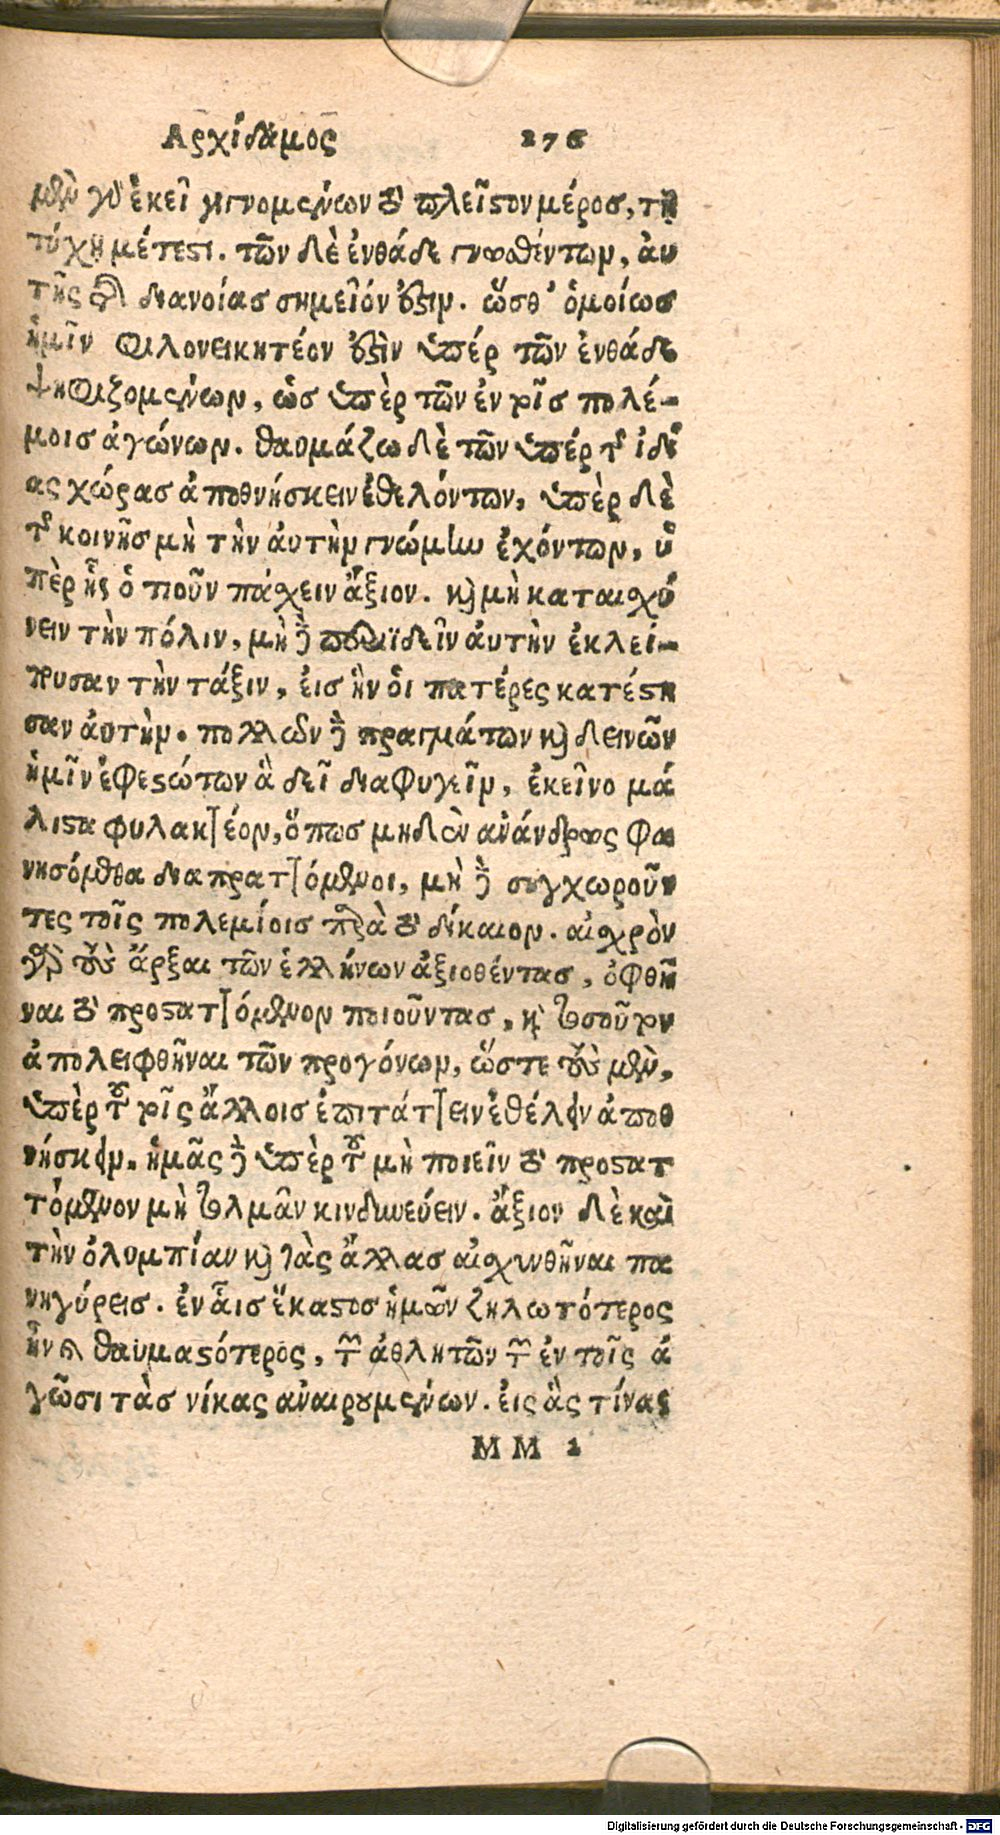 Αρχίδαμος 276
μὲν γὰρ ἐκεῖ γιγνομένων τὸ πλεῖστον μέρος, τῇ
τύχῃ μέτεστι. τῶν δὲ ἐνθάδε γνωσθέντων, αὐ
τῆς τῆς διανοίας σημεῖόν ἐστιν. ὥσθ' ὁμοίως
ἡμῖν φιλονεικητέον ἐστὶν ὑπέρ τῶν ἐνθάδε
ψηφιζομένων, ὡς ὑπὲρ τῶν ἐν τοῖς πολέ-
μοις ἀγώνων. θαυμάζω δὲ τῶν ὑπέρ τῆς ἰδί
ας χώρας ἀποθνήσκειν ἐθελόντων, ὑπὲρ δὲ
τῆς κοινῆς μὴ τὴν ἀυτὴν γνώμην ἐχόντων, ὑ
πὲρ ἧς ὁτιοῦν πάχειν ἄξιον. καὶ μὴ καταισχύ
νειν τὴν πόλιν, μὴ δὲ περιϊδεῖν ἀυτὴν ἐκλεί-
πουσαν τὴν τάξιν, ἐις ἣν ὁι πατέρες κατέστη
σαν ἀυτὴν. πολλῶν δὲ πραγμάτων καὶ δεινῶν
ἡμῖν ἐφεστώτων ἃ δεῖ διαφυγεῖν, ἐκεῖνο μά
λιστα φυλακτέον, ὅπως μηδὲν ἀνάνδρως φα
νησόμεθα διαπραττόμενοι, μὴ δὲ συγχωροῦν
τες τοῖς πολεμίοις παρὰ τὸ δίκαιον. αἰχρὸν
γὰρ τοὺς ἄρξαι τῶν ἑλλήνων ἀξιοθέντας, ὀφθῆ
ναι τὸ προσταττόμενον ποιοῦντας, καὶ τοσοῦτον
ἀπολειφθῆναι τῶν προγόνων, ὥστε τοὺς μὲν,
ὑπὲρ τοῦ τοῖς ἄλλοις ἐπιτάττειν ἐθέλειν ἀποθ
νήσκειν. ἡμᾶς δὲ ὑπὲρ τοῦ μὴ ποιεῖν τὸ προστατ
τόμενον μὴ τολμᾶν κινδυνεύειν. ἄξιον δὲ καὶ
τὴν ὀλυμπίαν καὶ τὰς ἄλλας αἰσχυνθῆναι πα
νηγύρεις. ἐν ἇις ἕκαστος ἡμῶν ζηλωτότερος
ἦν καὶ θαυμαστότερος, τῶν ἀθλητῶν τῶν ἐν τοῖς ἀ
γῶσι τὰς νίκας ἀναιρουμένων. ἐις ἃς τίνας
MM 2
Digitalisierung gefördert durch die Deutsche Forschungsgemeinschaft - DFG